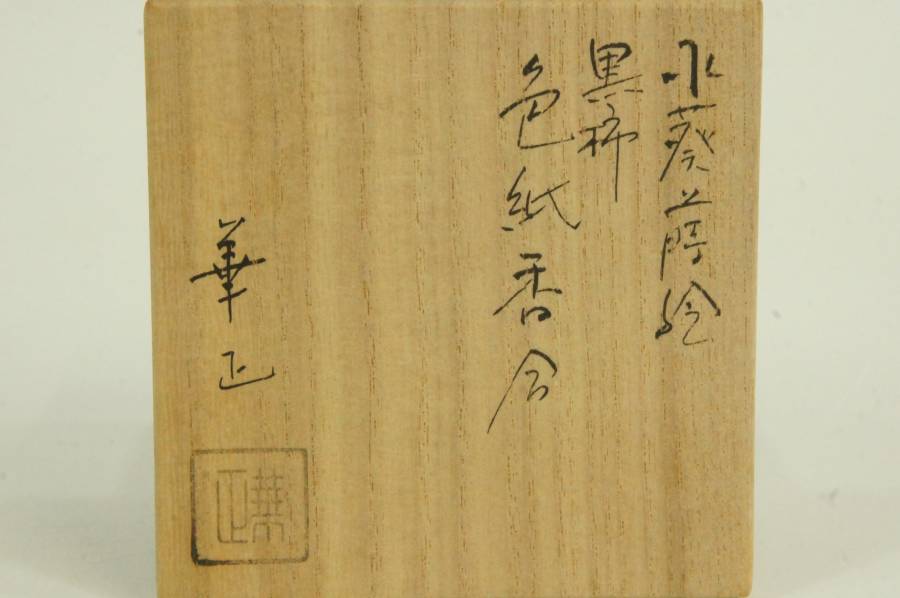 水葵蒔絵
黒柿
色紙香合
華正
華正